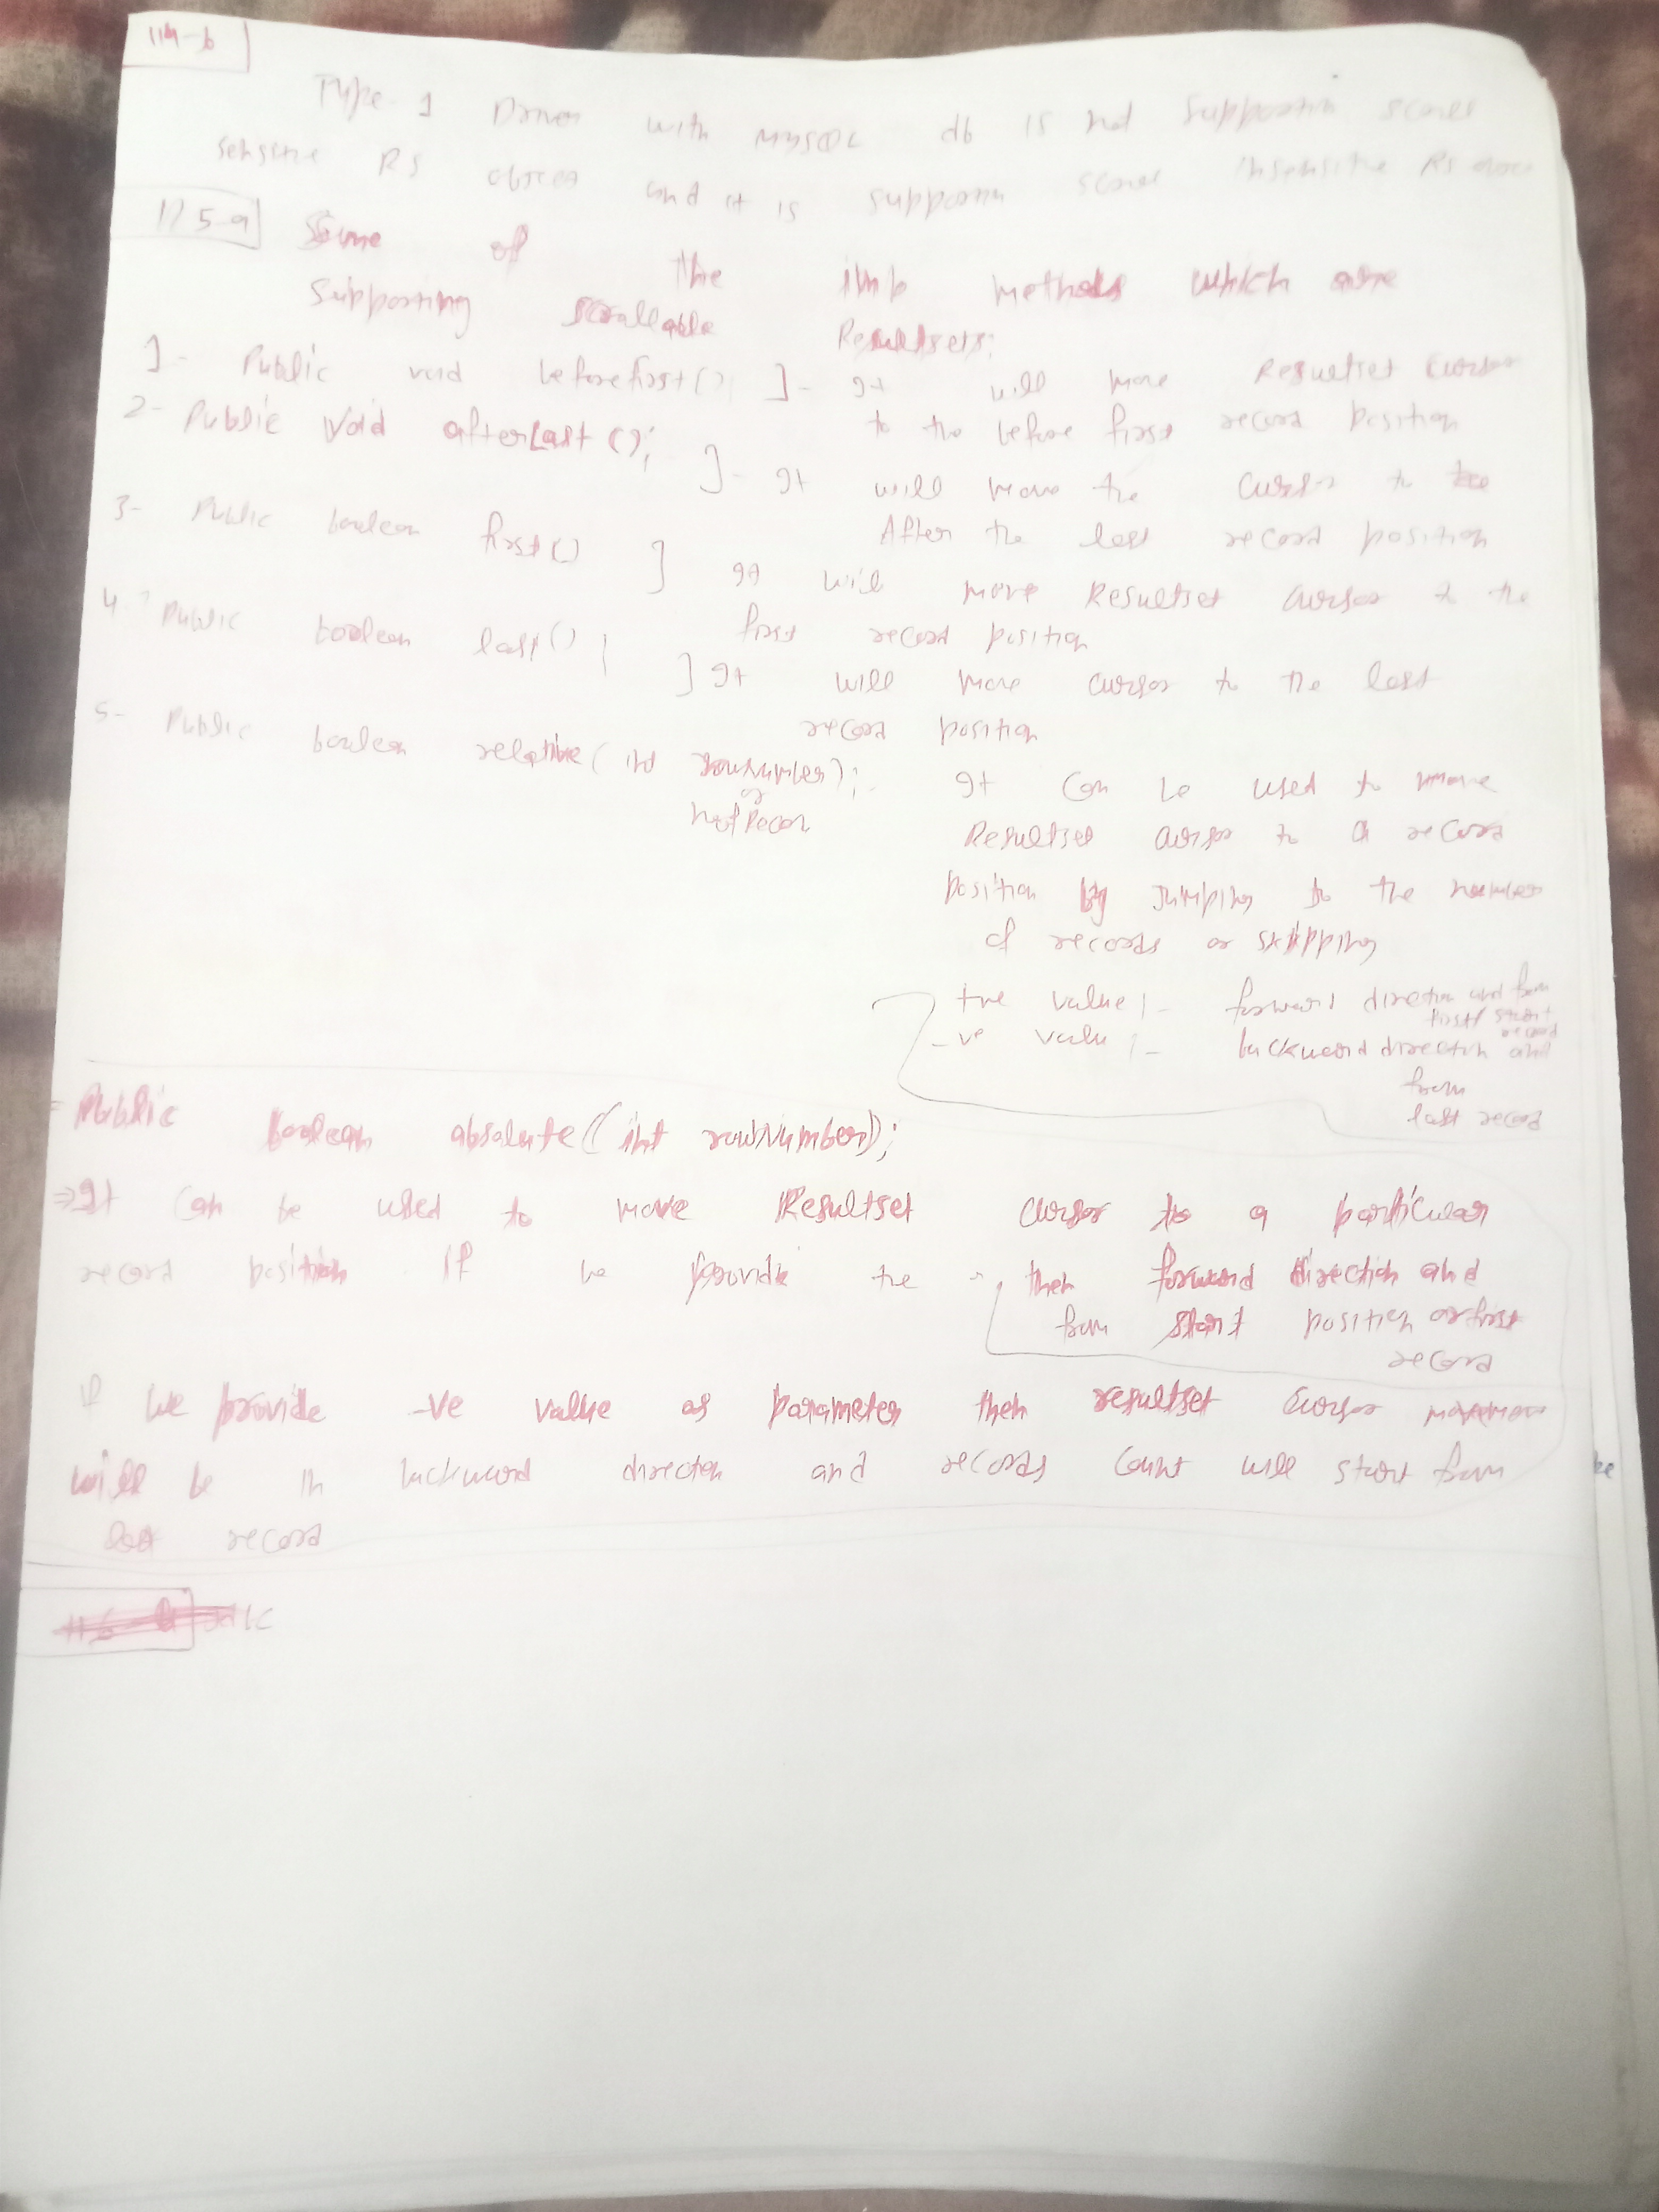 114-b
Type-1 Driver with MySQL db is not supportin scroll
sensitive RS object and it is supportin scroll insensitive RS
115-a Some of the imp methods which are
supporting scrollable Resultsets:
1- Public void beforefirst(); ]- It will move Resultset cursor
to the before first record position
2- Public void afterLast(); ]- It will move the cursor to the
After the last record position
3- Public boolean first() ] It will move Resultset cursor to the
first record position
4- Public boolean last() ] It will move cursor to the last
record position
5- Public boolean relative( int rowNumber);- It can be used to move
or
Resultset cursor to a record
position by jumping to the number
of records or skipping
+ve value :- forward direction and from
first/ start
record
-ve value :- backword direction and
from
last record
Public boolean absolute(int rowNumber);
⇒ It can be used to move Resultset cursor to a particular
record position if we provide +ve then forward direction and
from start position or first
record
if we provide -ve value as parameter then resultset cursor
will be in backword direction and records count will start from
last record